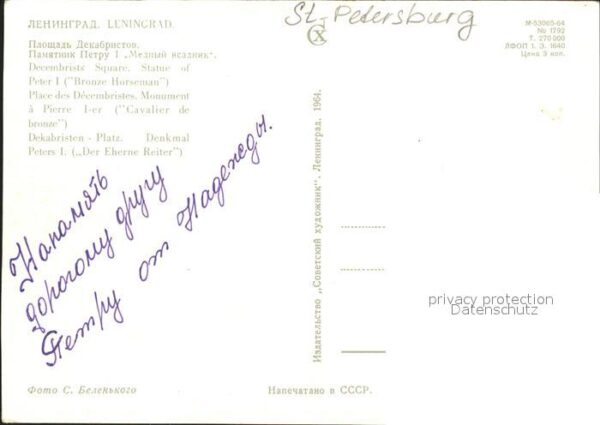 St-Petersburg
ЛЕНИНГРАД. LENINGRAD.
Площадь Декабристов.
Памятник Петру I „Медный всадник".
Decembrists' Square. Statue of
Peter I ("Bronze Horseman")
Place des Décembristes. Monument
à Pierre I-er ("Cavalier de
bronze")
Dekabristen - Platz. Denkmal
Peters I. („Der Eherne Reiter")
М-53065-64
№ 1792
Т. 270 000
ЛФОП 1. З. 1640
Цена 3 коп.
На память
дорогому другу
Петру от Надежды.
Издательство „Советский художник". Ленинград. 1964.
privacy protection
Datenschutz
Фото С. Беленького
Напечатано в СССР.